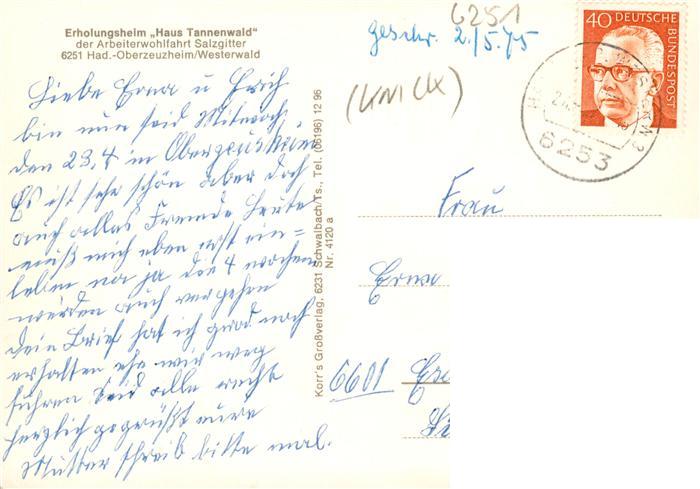 Erholungsheim „Haus Tannenwald"
der Arbeiterwohlfahrt Salzgitter
6251 Had.-Oberzeuzheim/Westerwald
6251
geschr. 2./5.75
(KNICK)
40 DEUTSCHE
BUNDESPOST
6253
Liebe Erna u Erich
bin nun seid Mittwoch
den 23.4 in Oberzeuzheim
Es ist sehr schön aber doch
auch alles Fremde Leute
muß mich eben erst ein=
leben na ja die 4 wochen
werden auch vergehen
dein Brief hat ich grad noch
erhalten ehe wir weg
fuhren Seid alle recht
herzlich gegrüßt eure
Mutter schreib bitte mal.
Korr's Großverlag, 6231 Schwalbach/Ts., Tel. (06196) 12 96
Nr. 4120 a
Frau
6601